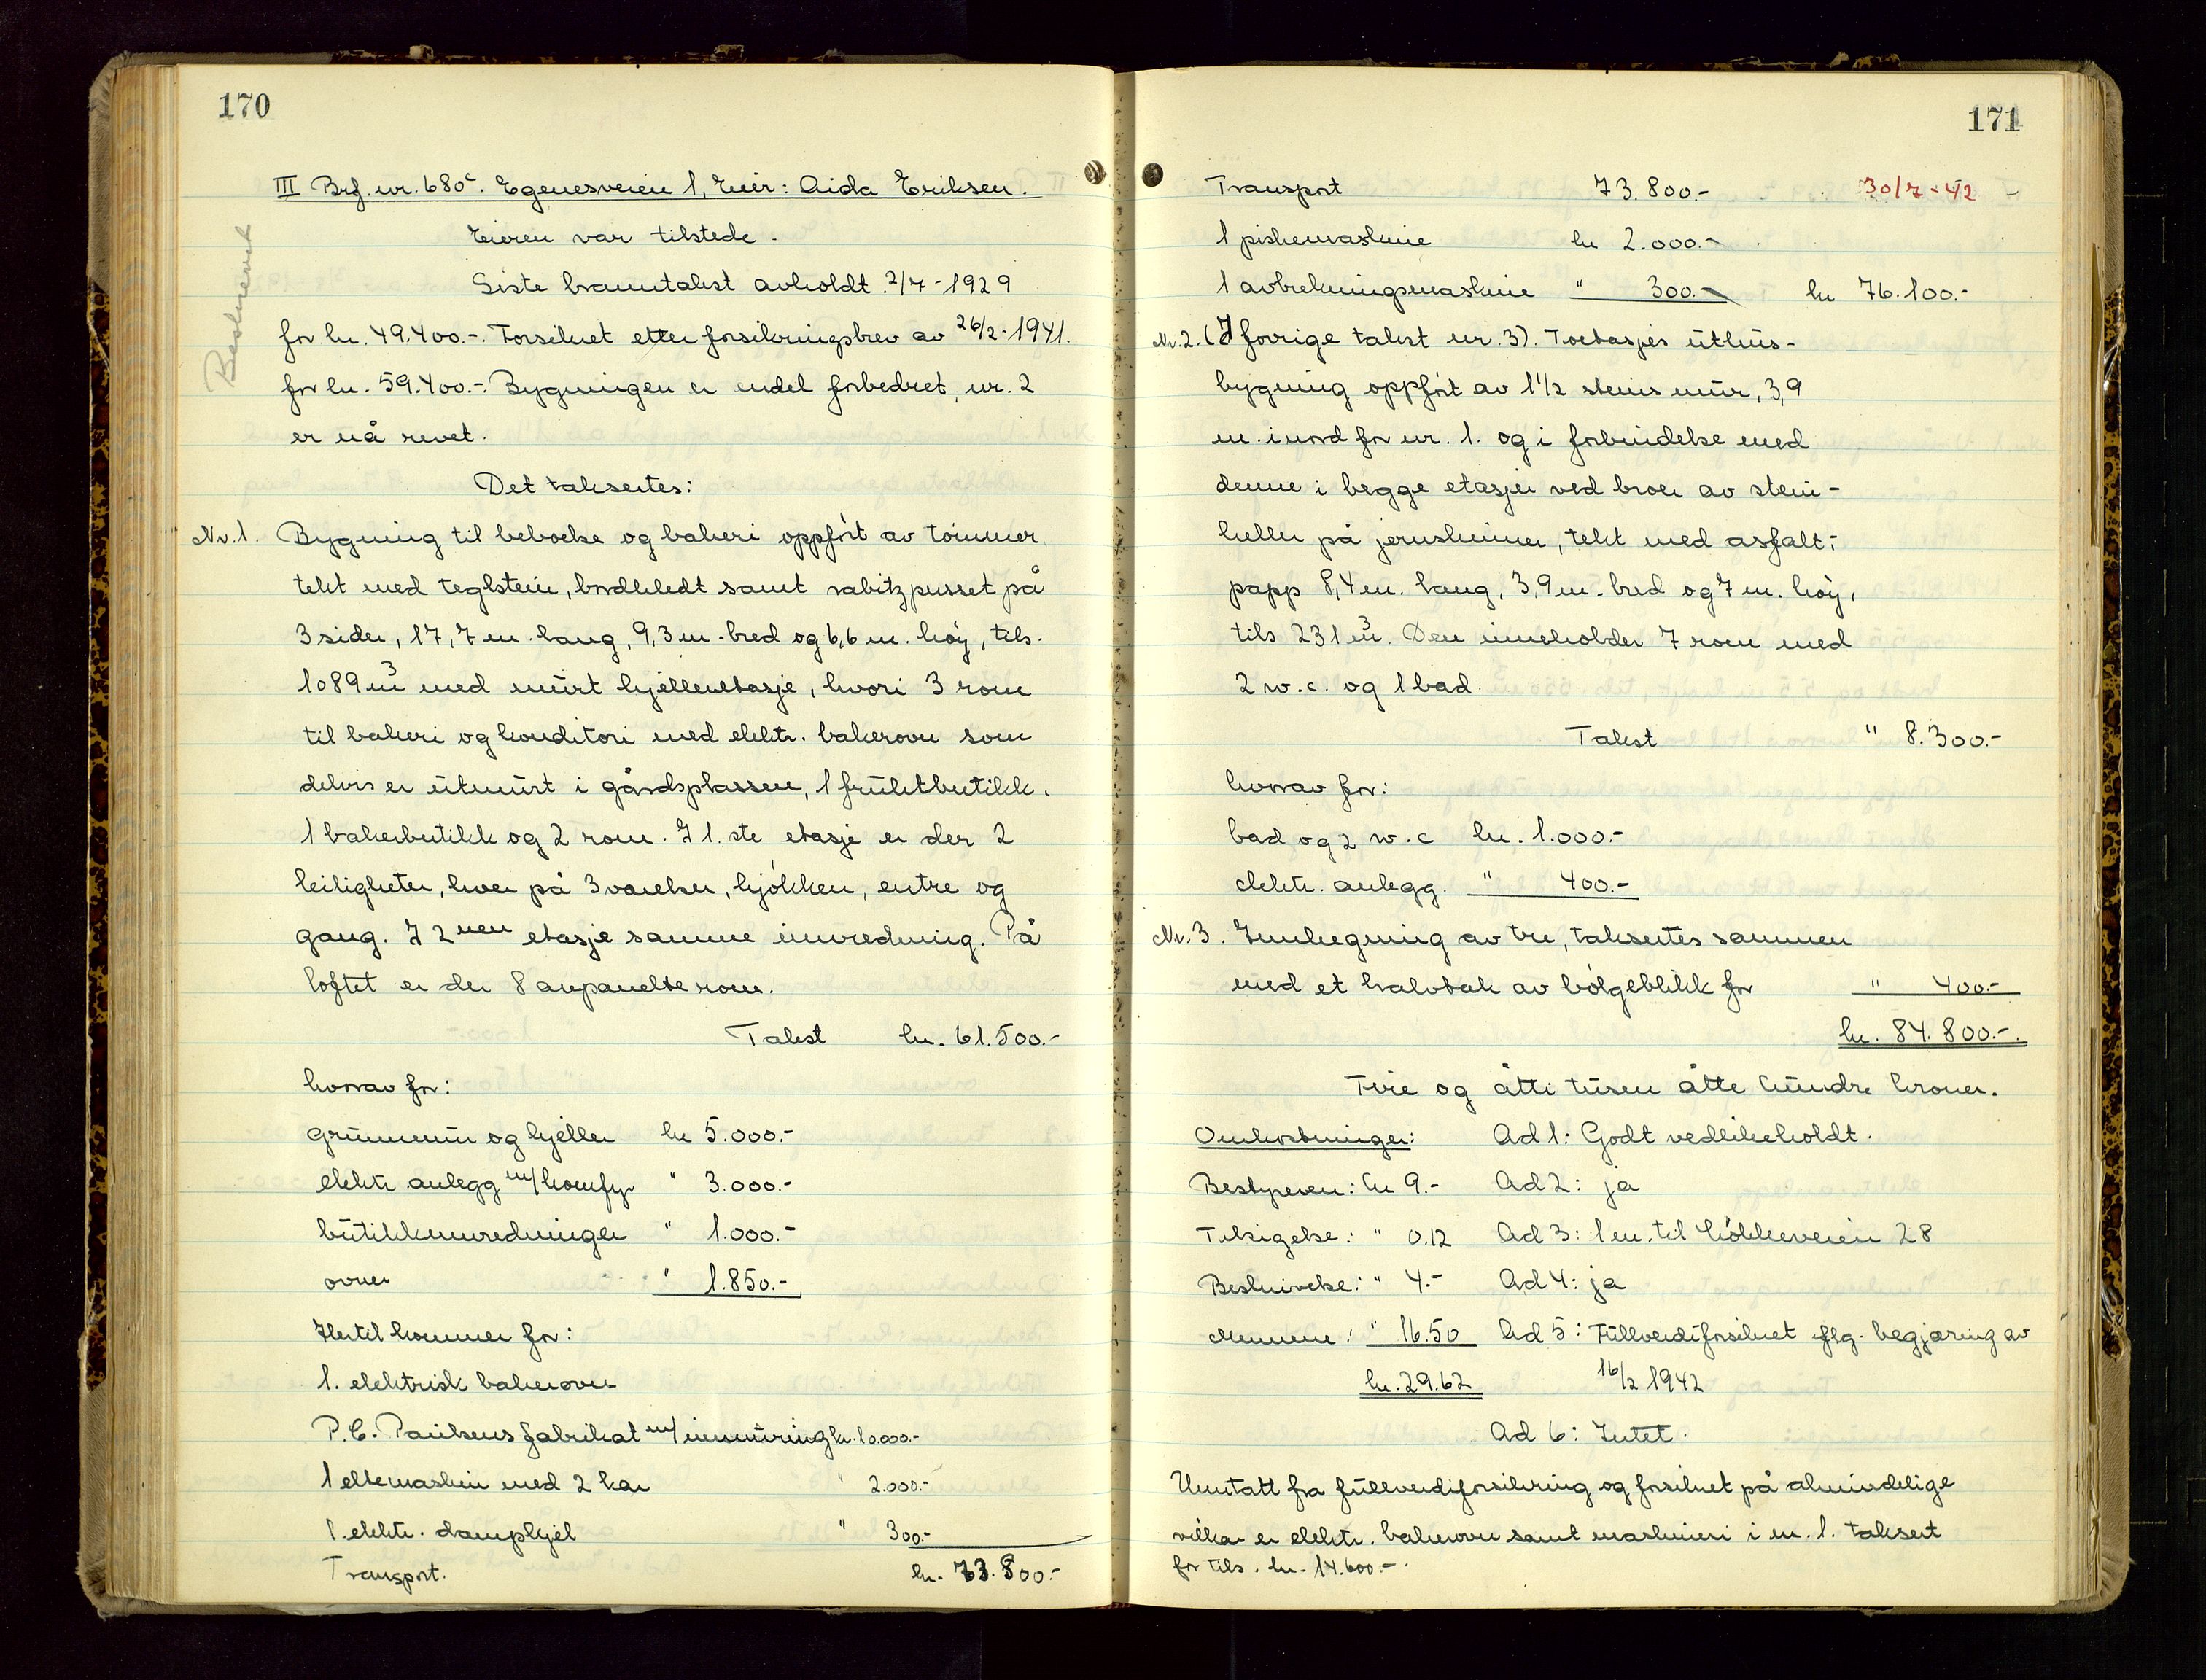 170
III Brf. nr. 685. Egenesveien 1, Eier: Aida Eriksen.
Eieren var tilstede.
Siste branntakst avholdt 2/7-1929
for kr. 49.400.-. Forsikret etter forsikringsbrev av 26/2-1941.
for kr. 59.400.-. Bygningen er endel forbedret, nr. 2
er nå revet.
Det taksertes:
Nr. 1. Bygning til beboelse og bakeri oppført av tømmer,
tekt med teglstein, bordkledt samt rabitzpusset på
3 sider, 17,7 m. lang, 9,3 m. bred og 6,6 m. høy, tils.
1089 m³ med murt kjelleretasje, hvori 3 rom
til bakeri og konditori med elektr. bakerovn som
delvis er utmurt i gårdsplassen, 1 fruktbutikk,
1 bakerbutikk og 2 rom. I 1.ste etasje er der 2
leiligheter, hver på 3 værelser, kjøkken, entre og
gang. I 2nen etasje samme innredning. På
loftet er der 8 avpanelte rom.
Takst kr. 61.500.-
hvorav for:
grunnmur og kjeller kr 5.000.-
elektr. anlegg m/komfyr " 3.000.-
butikkinnredninger " 1.000.-
ovner " 1.850.-
Hertil kommer for:
1. elektrisk bakerovn
P.C. Paulsens fabrikat m/innmuring kr. 10.000.-
1 eltemaskin med 2 kar " 2.000.-
1. elektr. dampkjel " 300.-
Transport. kr. 73.800.-
171
Transport 73.800.- 30/7-42
1 piskemaskine kr 2.000.-
1 avbrekningsmaskine " 300.- kr 76.100.-
Nr. 2. (I forrige takst nr. 3). Toetasjes uthus-
bygning oppført av 1 1/2 steins mur, 3,9
m. i nord for nr. 1. og i forbindelse med
denne i begge etasjer ved broer av stein-
heller på jernskinner, tekt med asfalt-
papp 8,4 m. lang, 3,9 m. bred og 7 m. høy,
tils 231 m³. Den inneholder 7 rom med
2 w.c. og 1 bad.
Takst " 8.300.-
hvorav for:
bad og 2 w.c kr. 1.000.-
elektr. anlegg. " 400.-
Nr. 3. Innhegning av tre, taksertes sammen
med et halvtak av bølgeblikk for " 400.-
kr. 84.800.-.
Fire og åtti tusen åtte hundre kroner.
Omkostninger: Ad 1: Godt vedlikeholdt.
Bestyreren: kr 9.- Ad 2: ja
Tilsigelse: " 0.12 Ad 3: 1 m. til Løkkeveien 28
Beskrivelse: " 4.- Ad 4: ja
Mennene: " 16.50 Ad 5: Fullverdiforsikret flg. begjæring av
kr. 29.62 16/2 1942
Ad 6: Intet.
Unntatt fra fullverdiforsikring og forsikret på almindelige
vilkår er elektr. bakerovn samt maskineri i nr. 1. taksert
for tils. kr. 14.600.-.
Beskrevet